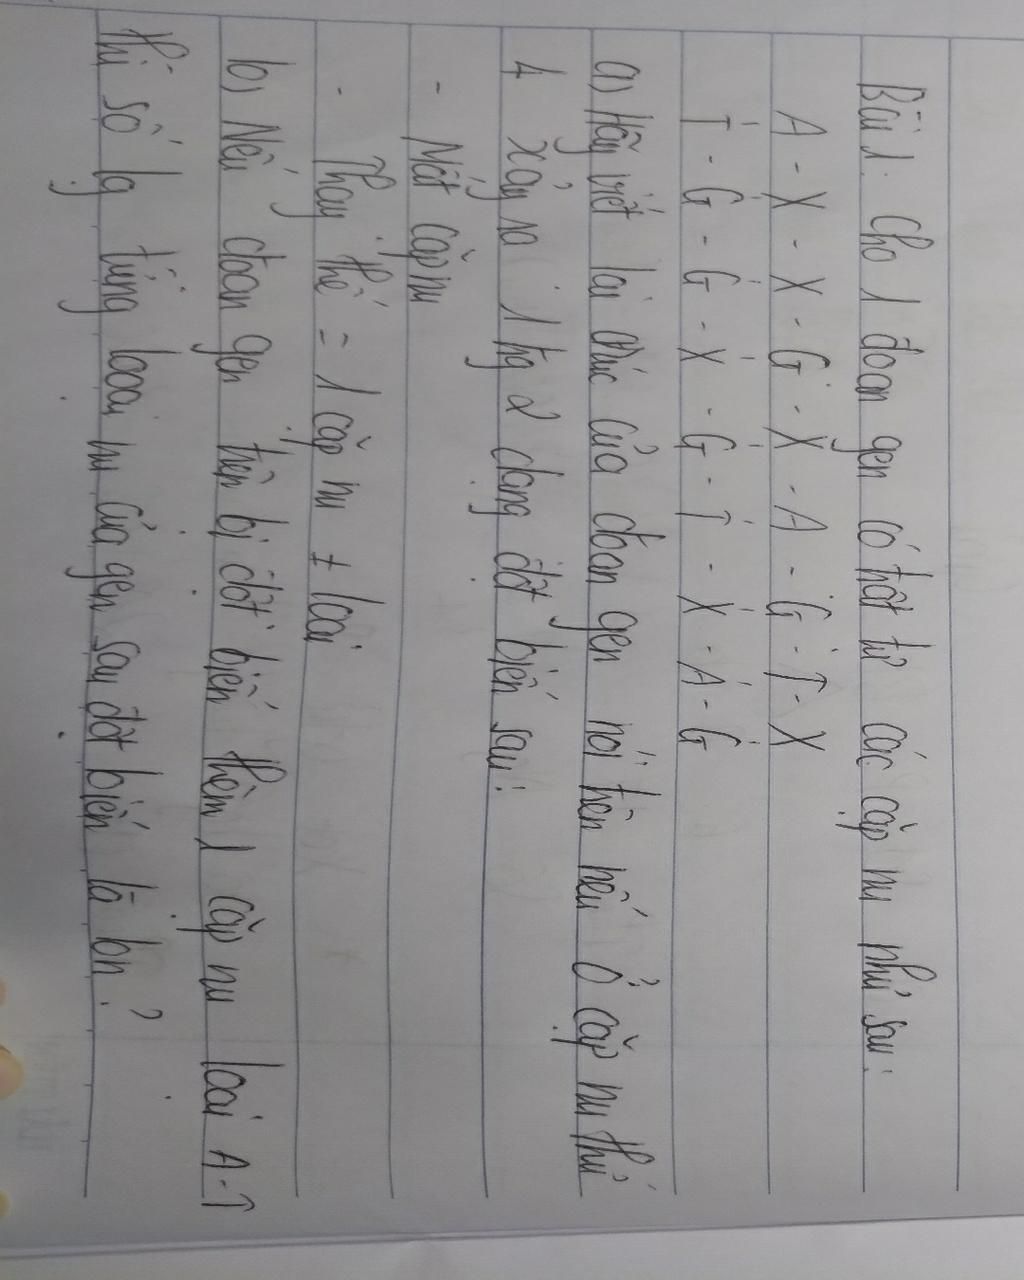 Bài 1. Cho 1 đoạn gen có trật tự các cặp nu như sau:
A - X - X - G - X - A - G - T - X
T - G - G - X - G - T - X - A - G
a) Hãy viết lại của đoạn gen nói trên nếu ở cặp nu thứ
4 xảy ra 1 trg 2 dạng đột biến sau:
- Mất cặp nu
- Thay thế = 1 cặp nu ≠ loại
b) Nếu đoạn gen trên bị đột biến thêm 1 cặp nu loại A-T
thì số lg từng loại nu của gen sau đột biến là bn?